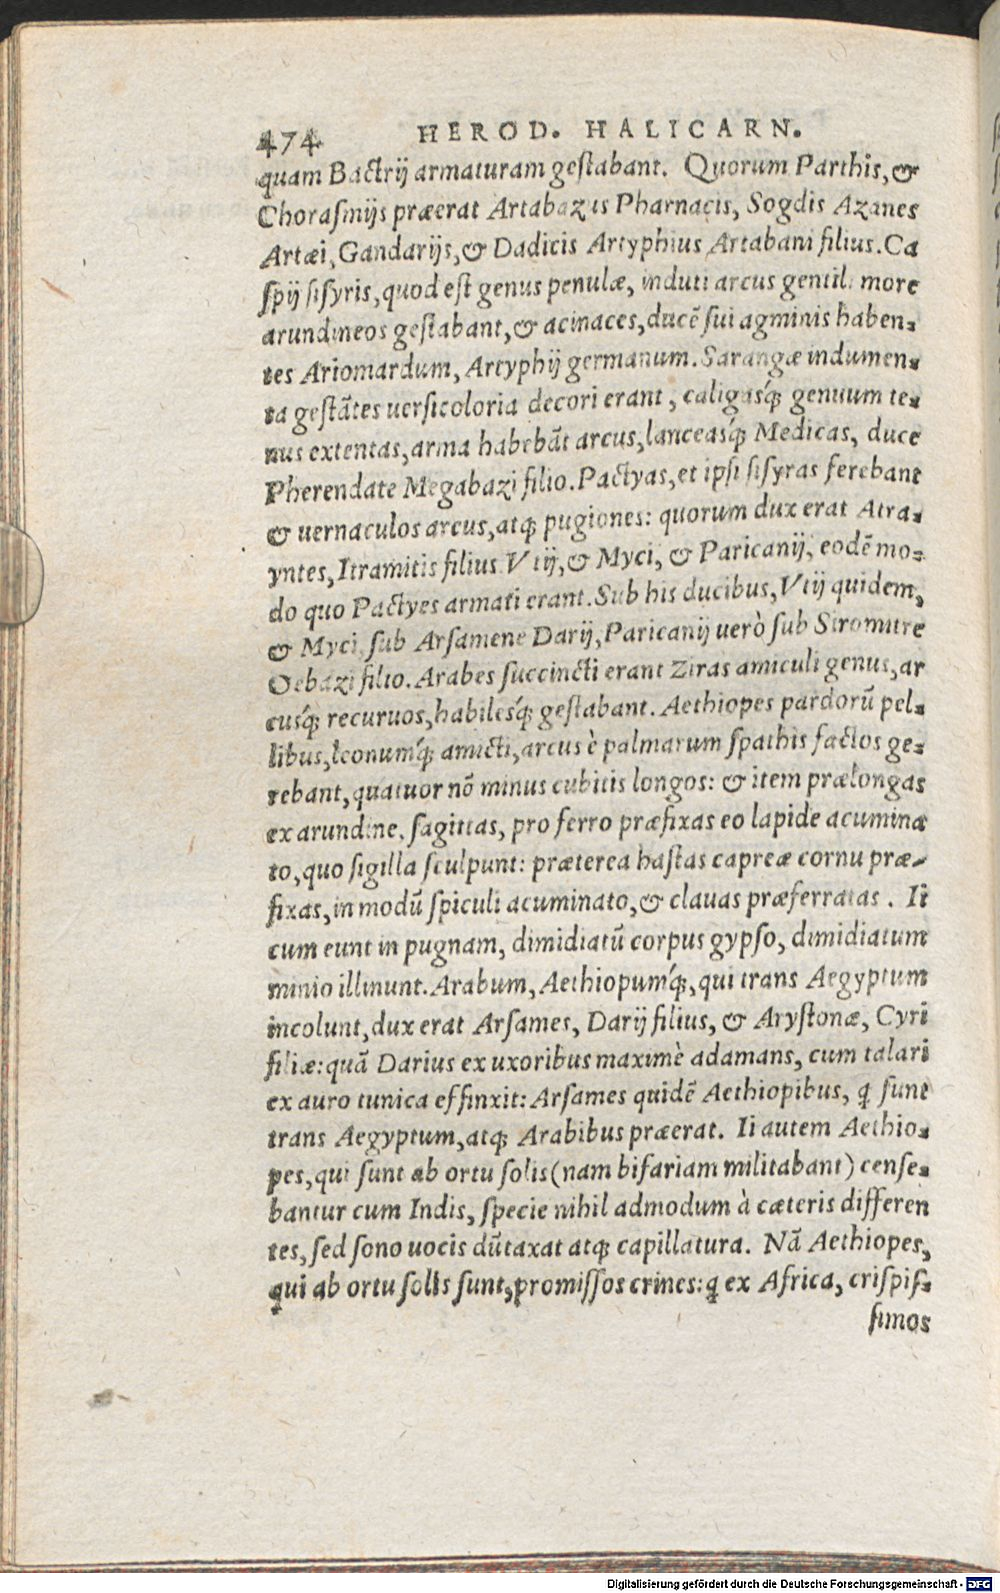 474 HEROD. HALICARN.
quam Bactrij armaturam gestabant. Quorum Parthis, &
Chorasmijs præerat Artabazus Pharnacis, Sogdis Azanes
Artæi, Gandarijs, & Dadicis Artyphius Artabani filius. Ca
spij sisyris, quod est genus penulæ, induti arcus gentili more
arundineos gestabant, & acinaces, ducẽ sui agminis haben-
tes Ariomardum, Artyphij germanum. Sarangæ indumen-
ta gestãtes uersicoloria decori erant, caligasq́; genuum te-
nus extentas, arma habebãt arcus, lanceasq́; Medicas, duce
Pherendate Megabazi filio. Pactyas, et ipsi sisyras ferebant
& uernaculos arcus, atq; pugiones: quorum dux erat Atra-
yntes, Itramitis filius. Vtij, & Myci, & Paricanij, eodẽ mo-
do quo Pactyes armati erant. Sub his ducibus, Vtij quidem,
& Myci, sub Arsamene Darij, Paricanij uerò sub Siromitre
Oebazi filio. Arabes succincti erant ziras amiculi genus, ar
cusq́; recuruos, habilesq́; gestabant. Aethiopes pardorũ pel-
libus, leonumq́; amicti, arcus è palmarum spathis factos ge-
rebant, quatuor nõ minus cubitis longos: & item prælongas
ex arundine, sagittas, pro ferro præfixas eo lapide acumina
to, quo sigilla sculpunt: præterea hastas capreæ cornu præ-
fixas, in modũ spiculi acuminato, & clauas præferratas. Ii
cum eunt in pugnam, dimidiatũ corpus gypso, dimidiatum
minio illinunt. Arabum, Aethiopumq́;, qui trans Aegyptum
incolunt, dux erat Arsames, Darij filius, & Arystonæ, Cyri
filiæ: quã Darius ex uxoribus maximè adamans, cum talari
ex auro tunica effinxit: Arsames quidẽ Aethiopibus, q̃ sunt
trans Aegyptum, atq; Arabibus præerat. Ii autem Aethio-
pes, qui sunt ab ortu solis (nam bifariam militabant) cense-
bantur cum Indis, specie nihil admodum à cæteris differen
tes, sed sono uocis dũtaxat atq; capillatura. Nã Aethiopes,
qui ab ortu solis sunt, promissos crines: q̃ ex Africa, crispis-
simos
Digitalisierung gefördert durch die Deutsche Forschungsgemeinschaft - DFG